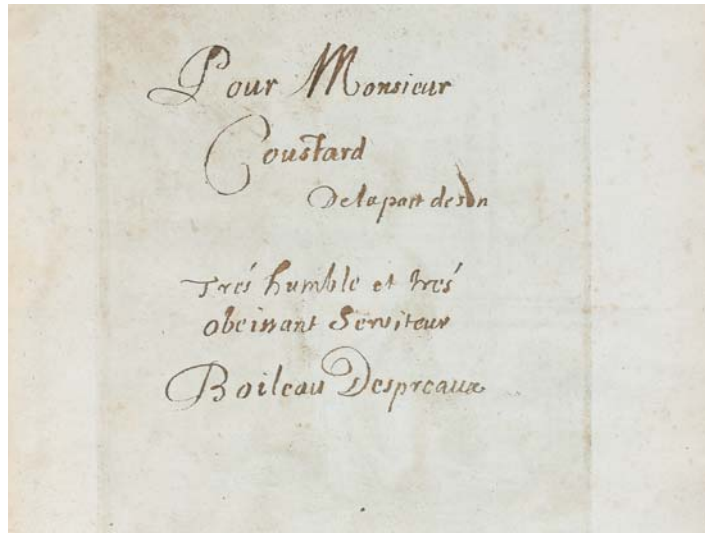 Pour Monsieur
Coustard
De la part de son
Trés humble et trés
obeissant Serviteur
Boileau Despreaux